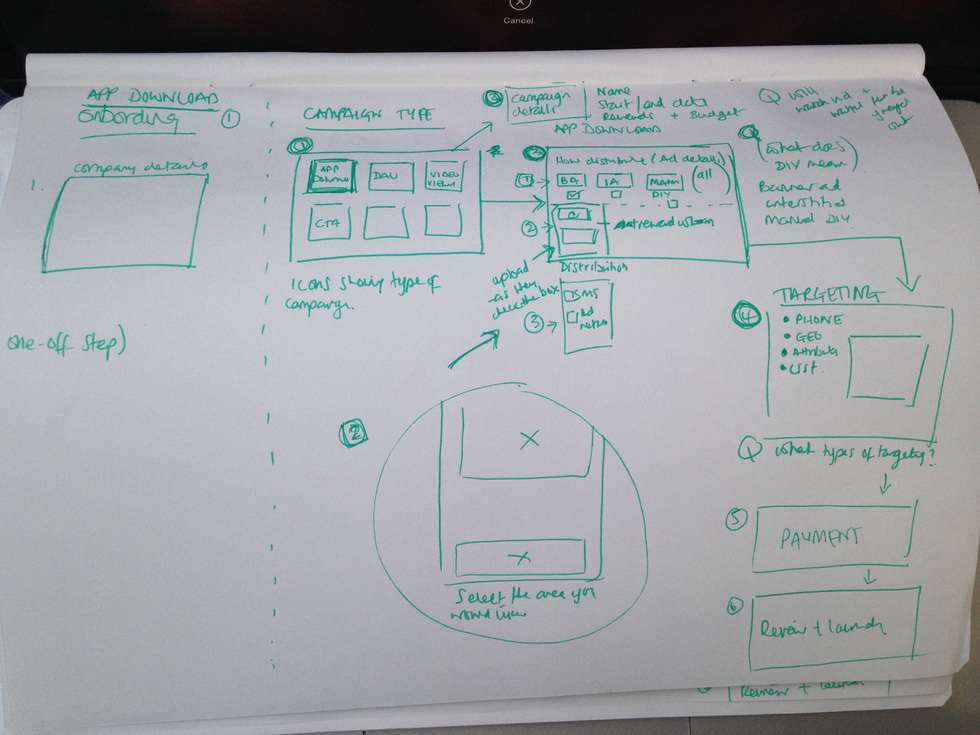 Cancel
APP DOWNLOAD
onbording ①
company details
1.
one-off step)
CAMPAIGN TYPE
①
APP
DOWNLOAD
DAU
VIDEO
VIEWS
CTA
Icons showing type of
campaign.
campaign
details
Name
Start/end date
Rewards + Budget
APP DOWNLOAD
How distribute (Ad details)
① →
BA
IA
MANN
DIY
(all
② →
Distribution
upload
as they
check the box
SMS
③ →
Ad
Q will
(what does
DIY mean)
Banner ad
interstitial
Manual DIY
TARGETING
④
• PHONE
• GEO
• Attributes
• LIST.
Q what types of targeting?
2
Select the area you
would like
⑤
PAYMENT
⑥
Review + launch
Review + launch